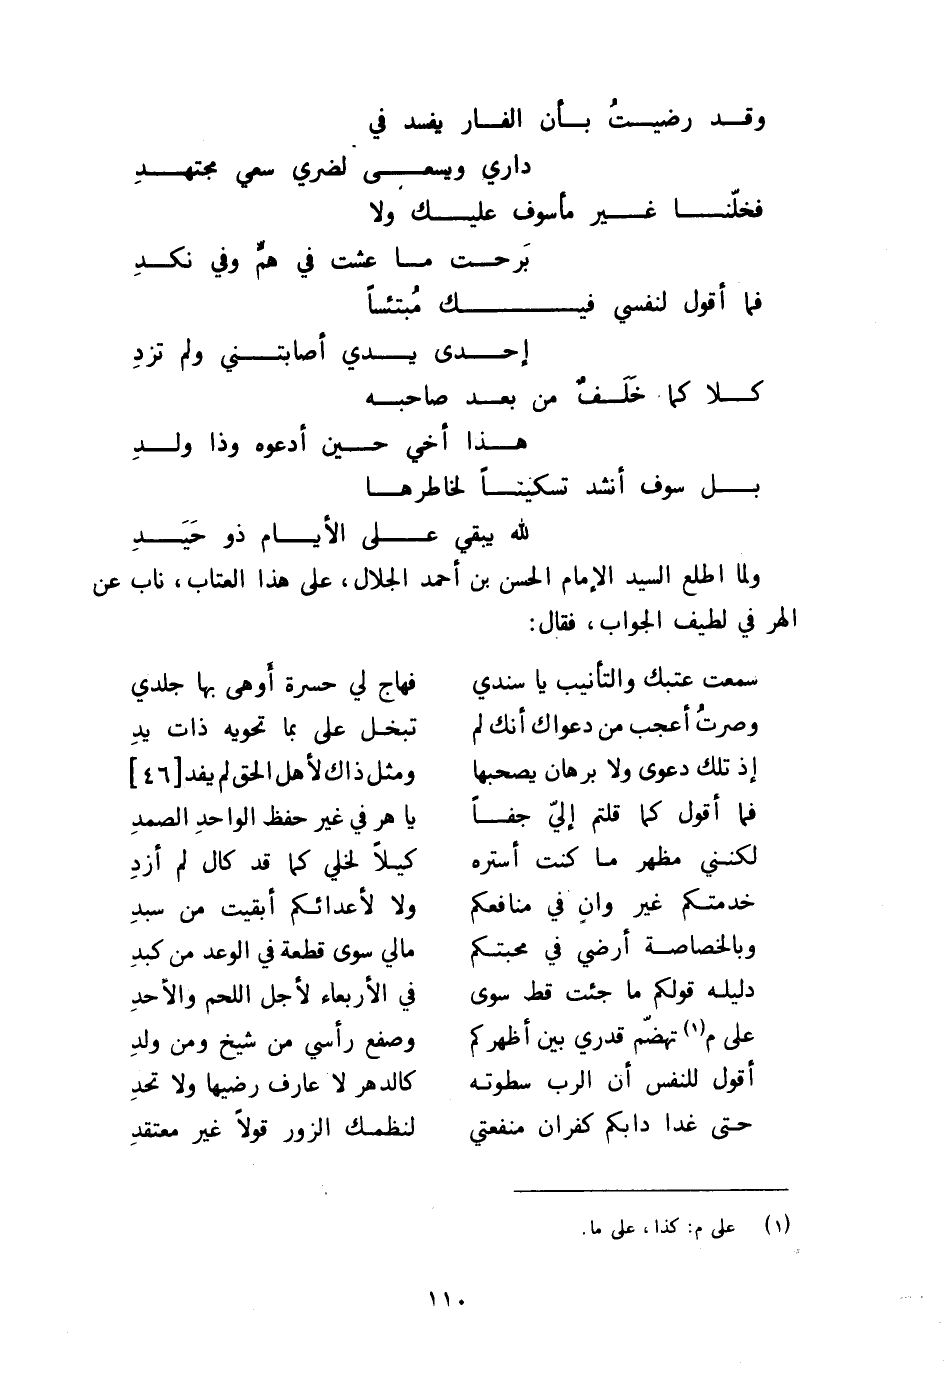 وقد رضيتُ بأن الفار يفسد في
داري ويسعى لضري سعي مجتهدِ
فخلّنا غير مأسوف عليك ولا
بَرحت ما عشت في همٍّ وفي نكدِ
فما أقول لنفسي فيك مُبتئساً
إحدى يدي أصابتني ولم تزدِ
كلا كما خَلَفٌ من بعد صاحبه
هذا أخي حين أدعوه وذا ولدِ
بل سوف أنشد تسكيتاً لخاطرها
لله يبقي على الأيام ذو حَيَدِ
ولما اطلع السيد الإمام الحسن بن أحمد الجلال، على هذا العتاب، ناب عن
الهر في لطيف الجواب، فقال:
سمعت عتبك والتأنيب يا سندي فهاج لي حسرة أوهى بها جلدي
وصرتُ أعجب من دعواك أنك لم تبخل على بما تحويه ذات يدِ
إذ تلك دعوى ولا برهان يصحبها ومثل ذاك لأهل الحق لم يفد [٤٦]
فما أقول كما قلتم إليّ جفاً يا هر في غير حفظ الواحدِ الصمدِ
لكنني مظهر ما كنت أستره كيلاً لخلي كما قد كال لم أزدِ
خدمتكم غير وانٍ في منافعكم ولا لأعدائكم أبقيت من سبدِ
وبالخصاصة أرضي في محبتكم مالي سوى قطعة في الوعد من كبدِ
دليله قولكم ما جئت قط سوى في الأربعاء لأجل اللحم والأحدِ
على م(١) تهضّم قدري بين أظهركم وصفع رأسي من شيخ ومن ولدِ
أقول للنفس أن الرب سطوته كالدهر لا عارف رضيها ولا تحدِ
حتى غدا دابكم كفران منفعتي لنظمك الزور قولاً غير معتقدِ
(١) على م: كذا، على ما.
١١٠